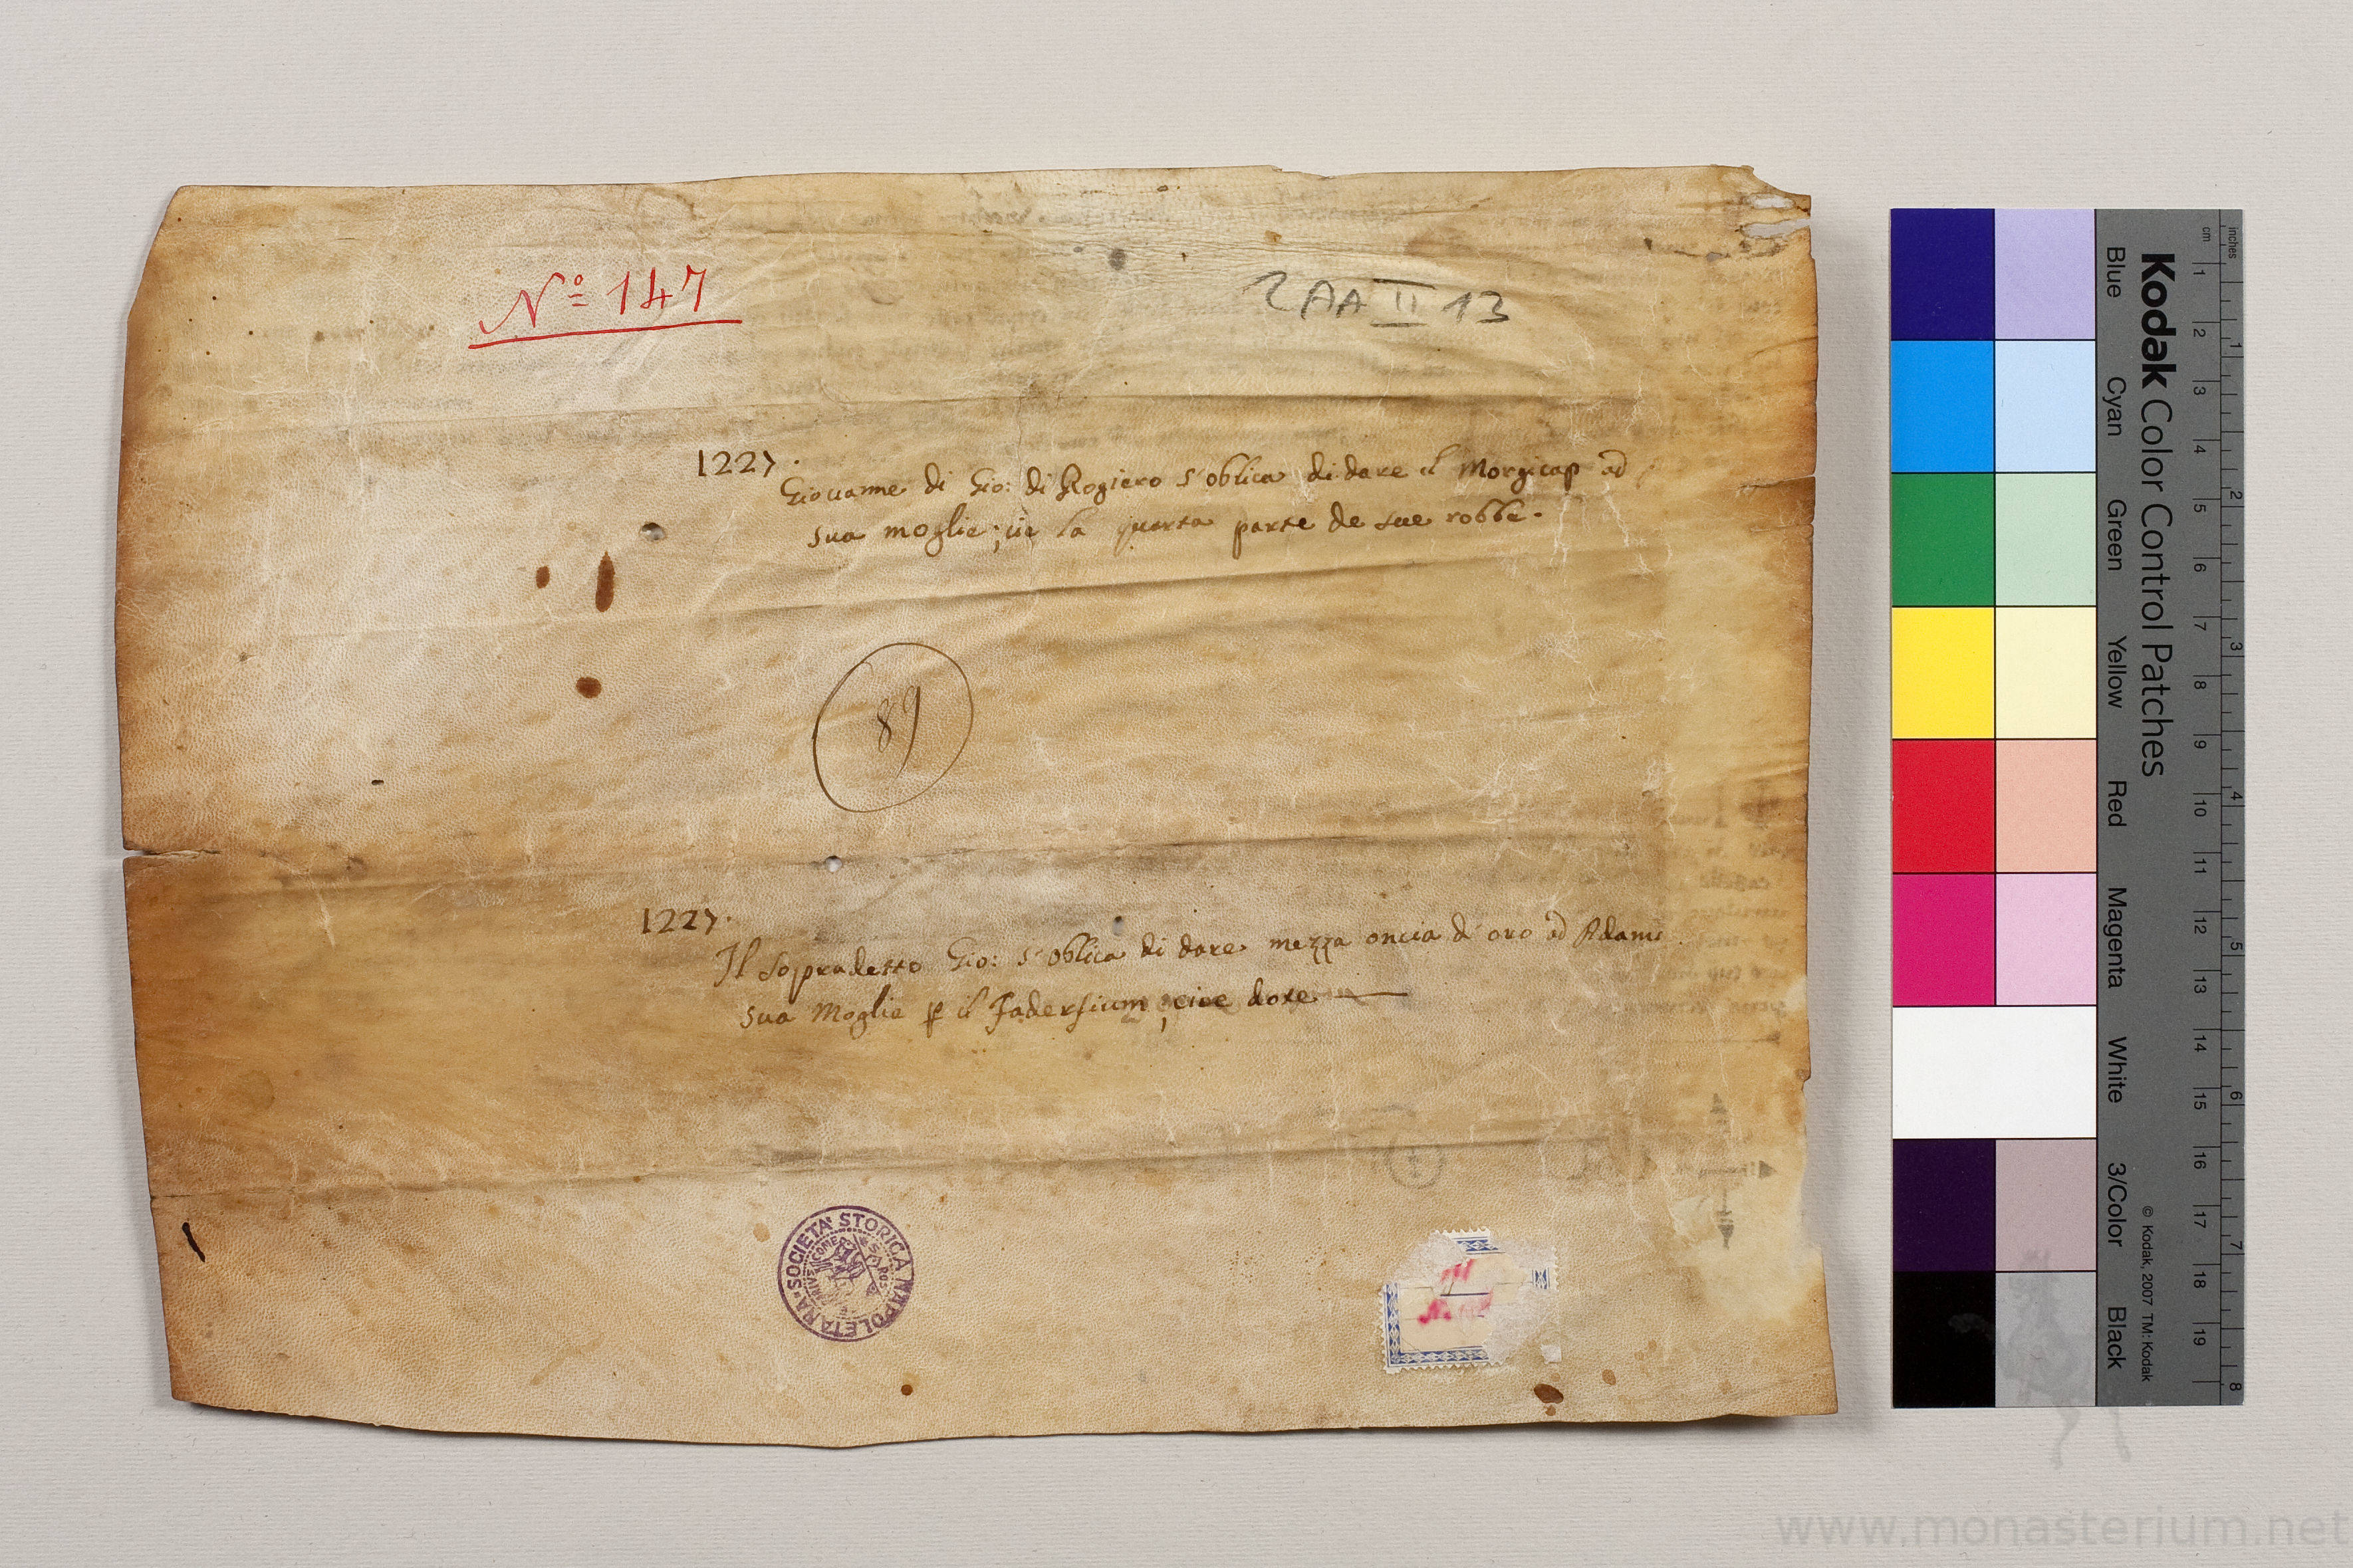 Nº 147
2 AA II 13
1227.
Giovanne di Gio: di Rogiero s'oblica di dare il Morgicap ad
sua moglie; la quarta parte de sue robbe.
89
1227.
Il sopradetto Gio: s'oblica di dare mezza oncia d'oro ad Adami
sua Moglie p il Faderfium, cioe dote
SOCIETA' STORICA NAPOLETANA
Kodak Color Control Patches
Blue
Cyan
Green
Yellow
Red
Magenta
White
3/Color
Black
© Kodak, 2007 TM: Kodak
cm 1 2 3 4 5 6 7 8 9 10 11 12 13 14 15 16 17 18 19
inches 1 2 3 4 5 6 7 8
www.monasterium.net